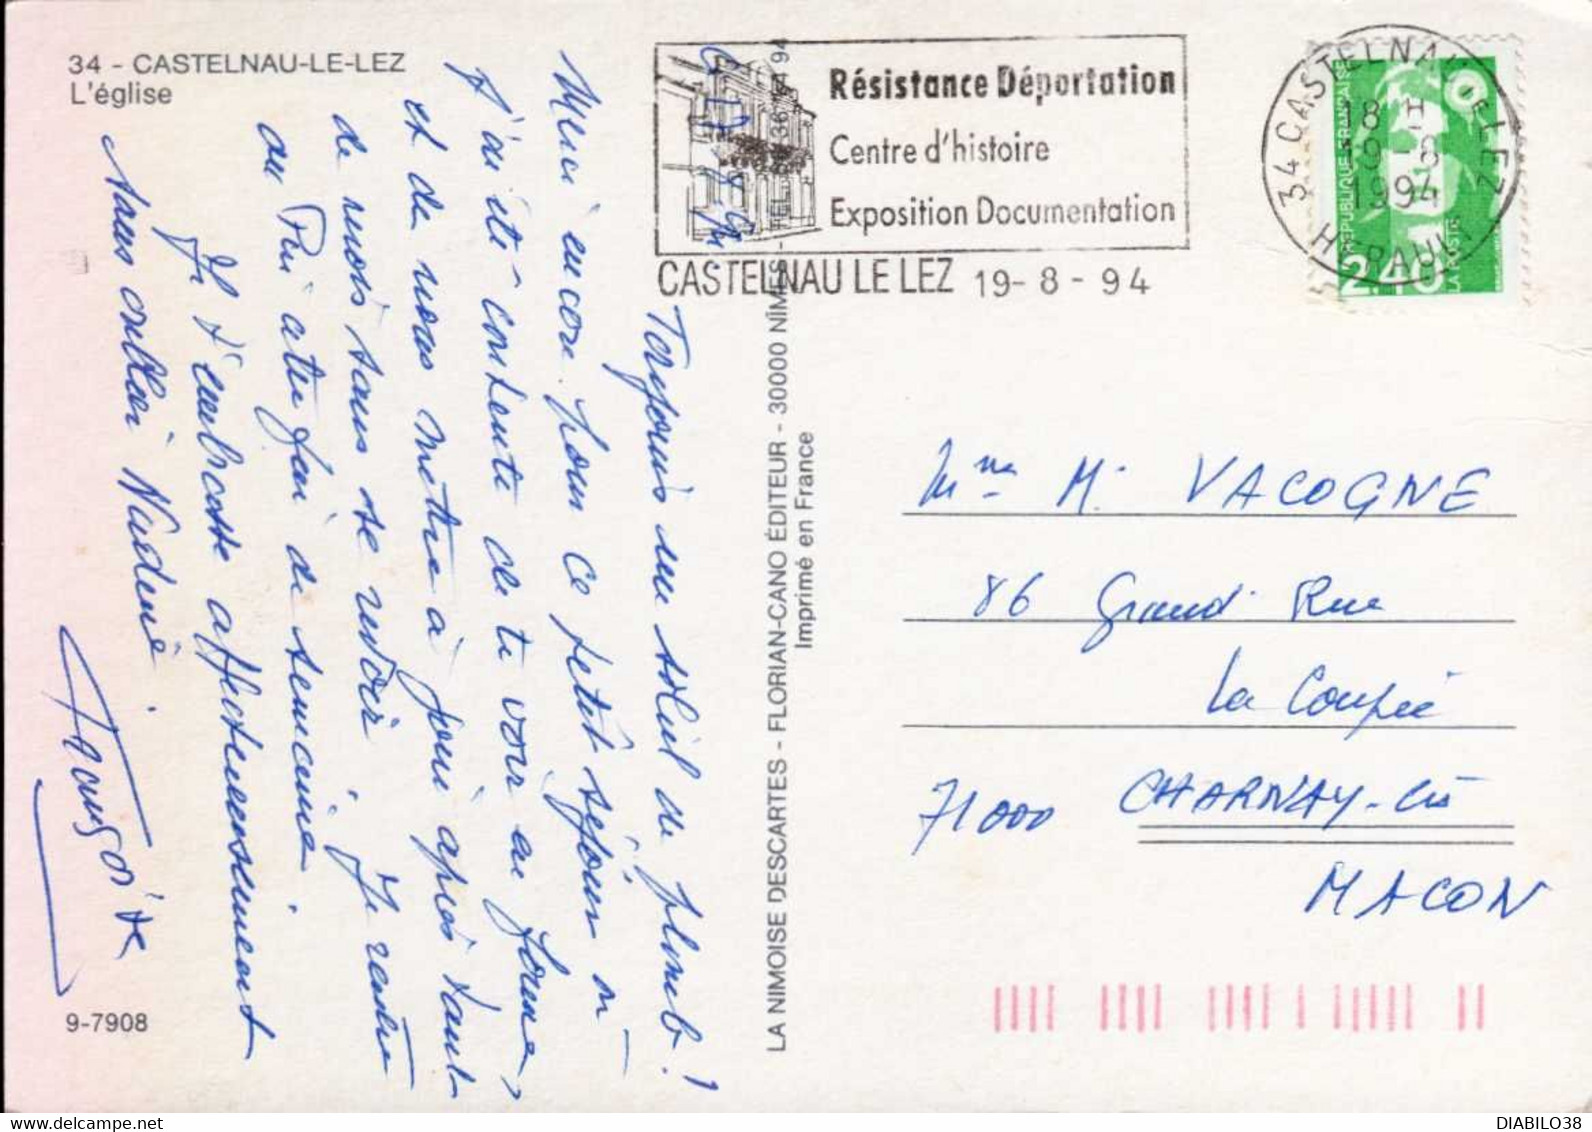 34 - CASTELNAU-LE-LEZ
L'église
Résistance Déportation
Centre d'histoire
Exposition Documentation
CASTELNAU LE LEZ 19-8-94
34 CASTELNAU LE LEZ
18 H
19-8
1994
HERAULT
REPUBLIQUE FRANÇAISE
2.40
LA POSTE
Toujours un soleil de plomb!
Merci encore pour ce petit séjour où
j'ai été contente de te voir en forme,
et de nous mettre à jour après tant
de mois sans se revoir. Je rentre
au Puy aten fin de semaine
Je t'embrasse affectueusement
sans oublier Nadine.
Françoise
9-7908
LA NIMOISE DESCARTES - FLORIAN-CANO ÉDITEUR - 30000 NÎMES - TEL
Imprimé en France
Mme M. VACOGNE
86 Grand Rue
La Coupée
71000 CHARNAY-les
MACON
DIABILO38